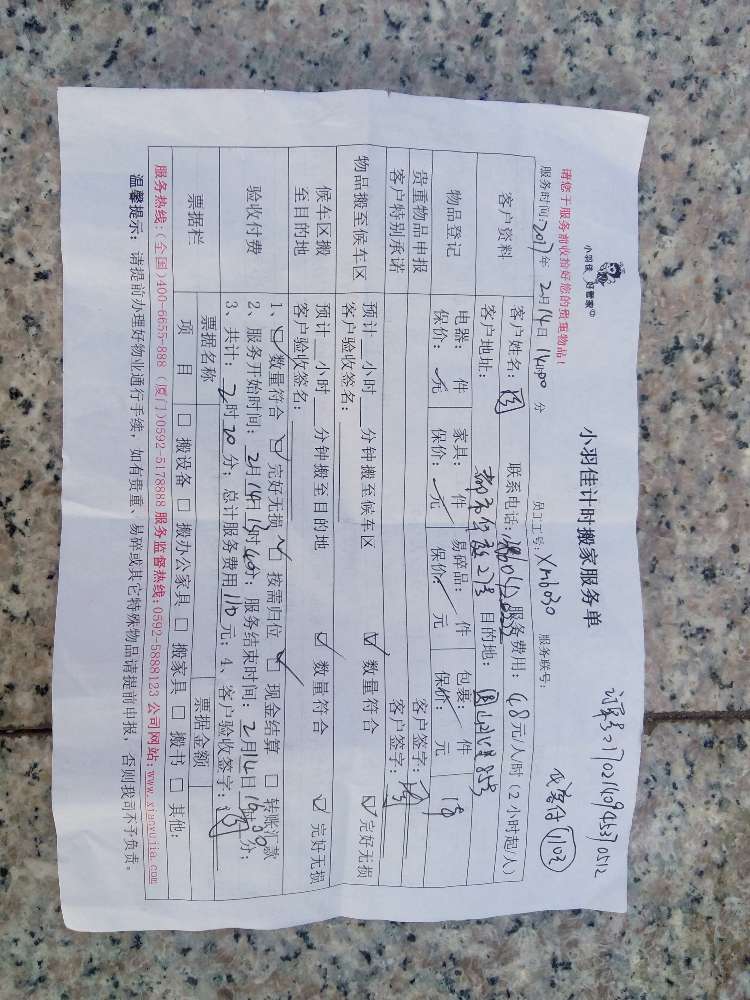 小羽佳 好管家
小羽佳计时搬家服务单
请您于服务前收拾好您的贵重物品！
服务时间：2017年 2月14日 14:00 分 员工工号：Xm1030 服务联号：
客户资料
客户姓名： 联系电话： 服务费用：48元/人/时（2小时起/人）
客户地址： 目的地：
物品登记
电器： 件 家具： 件 易碎品： 件 包裹： 件
保价： 元 保价： 元 保价： 元 保价： 元
贵重物品申报 客户签字：
客户特别承诺 客户签字：
物品搬至候车区
预计__小时__分钟搬至候车区 ☑ 数量符合 ☑ 完好无损
客户验收签名：
候车区搬至目的地
预计__小时__分钟搬至目的地 ☑ 数量符合 ☑ 完好无损
客户验收签名：
验收付费
1、☑ 数量符合 ☑ 完好无损 ☑ 按需归位 ☑ 现金结算 □ 转账汇款
2、服务开始时间：2月14日 服务结束时间：2月14日
3、共计：2时20分；总计服务费用110元；4、客户验收签字：
票据栏
票据名称 票据金额
项 目 □ 搬设备 □ 搬办公家具 □ 搬家具 □ 搬书 □ 其他：
服务热线：(全国)400-6655-888 (厦门)0592-5178888 服务监督热线：0592-5888123 公司网站：www.xianyujia.com
温馨提示：请提前办理好物业通行手续，如有贵重、易碎或其它特殊物品请提前申报，否则我司不予负责。